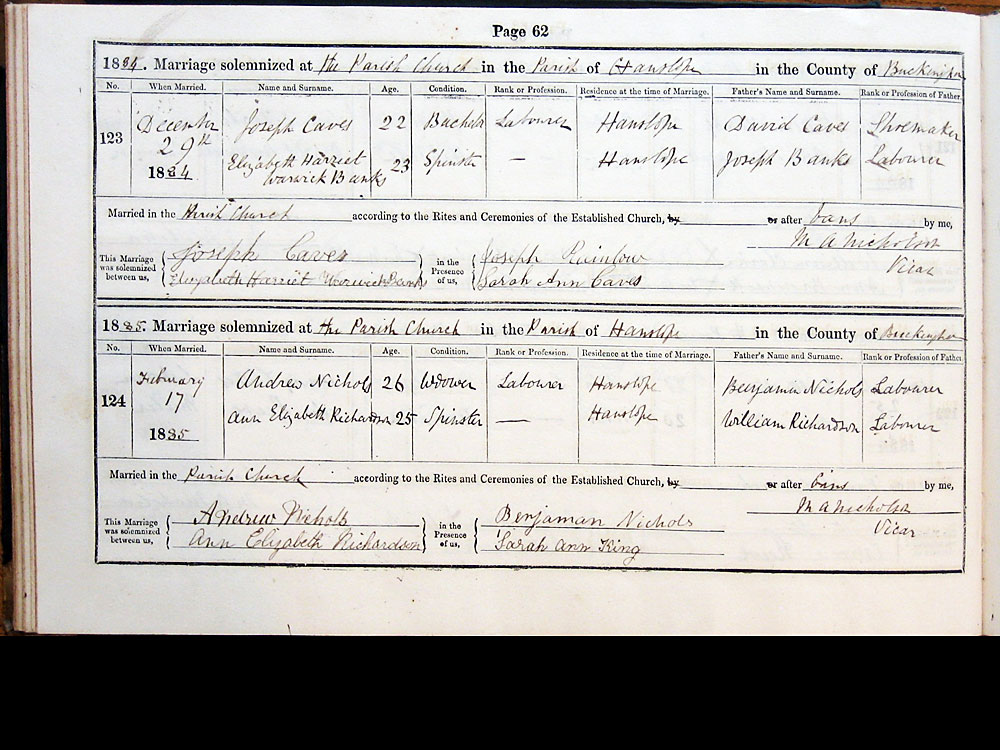 Page 62
1884. Marriage solemnized at the Parish Church in the Parish of Hanslope in the County of Buckingham
No. When Married. Name and Surname. Age. Condition. Rank or Profession. Residence at the time of Marriage. Father's Name and Surname. Rank or Profession of Father.
123 December 29th 1884 Joseph Caves 22 Bachelor Labourer Hanslope David Caves Shoemaker
Elizabeth Harriet Warwick Banks 23 Spinster — Hanslope Joseph Banks Labourer
Married in the Parish Church according to the Rites and Ceremonies of the Established Church, by or after bans by me,
M A Nicholson
Vicar
This Marriage was solemnized between us, Joseph Caves in the Presence of us, Joseph Rainbow
Elizabeth Harriet Warwick Banks Sarah Ann Caves
1885. Marriage solemnized at the Parish Church in the Parish of Hanslope in the County of Buckingham
No. When Married. Name and Surname. Age. Condition. Rank or Profession. Residence at the time of Marriage. Father's Name and Surname. Rank or Profession of Father.
124 February 17 1885 Andrew Nichols 26 Wdower Labourer Hanslope Benjamin Nichols Labourer
Ann Elizabeth Richardson 25 Spinster — Hanslope William Richardson Labourer
Married in the Parish Church according to the Rites and Ceremonies of the Established Church, by or after bans by me,
M A Nicholson
Vicar
This Marriage was solemnized between us, Andrew Nichols in the Presence of us, Benjaman Nichols
Ann Elizabeth Richardson Sarah Ann King